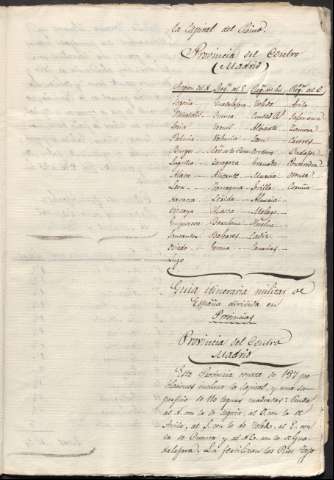 la Capital del Reino.
Provincia del Centro
(Madrid)
Segovia Guadalajara Toledo Avila
Cuenca Ciudad Rl. Salamanca
Soria Teruel Albacete Zamora
Valencia Jaen Caceres
Burgos Badajoz
Logroño Zaragoza Granada Pontevedra
Alava Alicante Murcia Orense
Leon Tarragona Sevilla Coruña
Navarra Lerida Almeria
Vizcaya Huesca Malaga
Guipuzcoa Barcelona Huelva
Santander Baleares Cadiz
Oviedo Gerona Canarias
Lugo
Guia itineraria militar de
España dividida en
Provincias
Provincia del Centro
Madrid
Esta Provincia consta de 197 po
blaciones incluso la Capital, y una su
perficie de 110 leguas cuadradas: linda
al N. con la de Segovia, al O. con la de
Avila, al S. con la de Toledo, al E. con
la de Cuenca y al N.E. con la de Gua
dalajara. La fertilizan los Rios Tajo